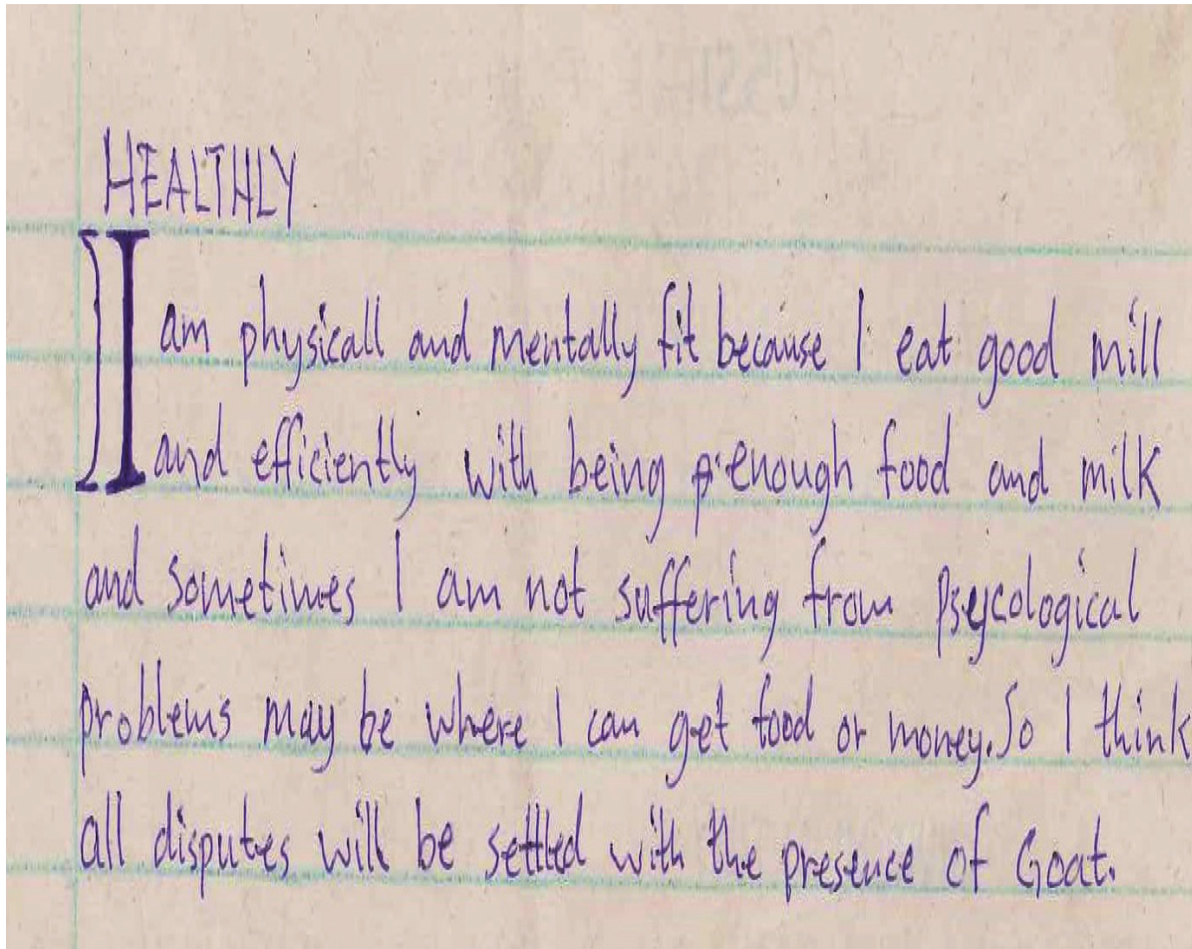 HEALTHLY
I am physicall and mentally fit because I eat good mill
and efficiently with being enough food and milk
and sometimes I am not suffering from Psycological
problems may be where I can get food or money. So I think
all disputes will be settled with the presence of Goat.